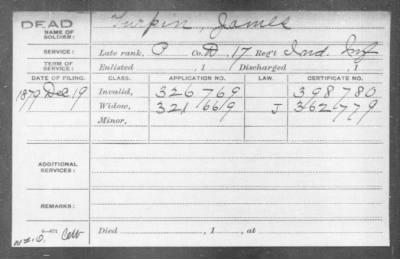 DEAD Turpin, James
NAME OF SOLDIER:
SERVICE: Late rank, P Co. D, 17 Reg't Ind. Inf
TERM OF SERVICE: Enlisted , 1 Discharged , 1
DATE OF FILING. CLASS. APPLICATION NO. LAW. CERTIFICATE NO.
1879 Dec. 19 Invalid, 326 769 398 780
Widow, 321 669 J 362 779
Minor,
ADDITIONAL SERVICES:
REMARKS:
Died , 1 , at